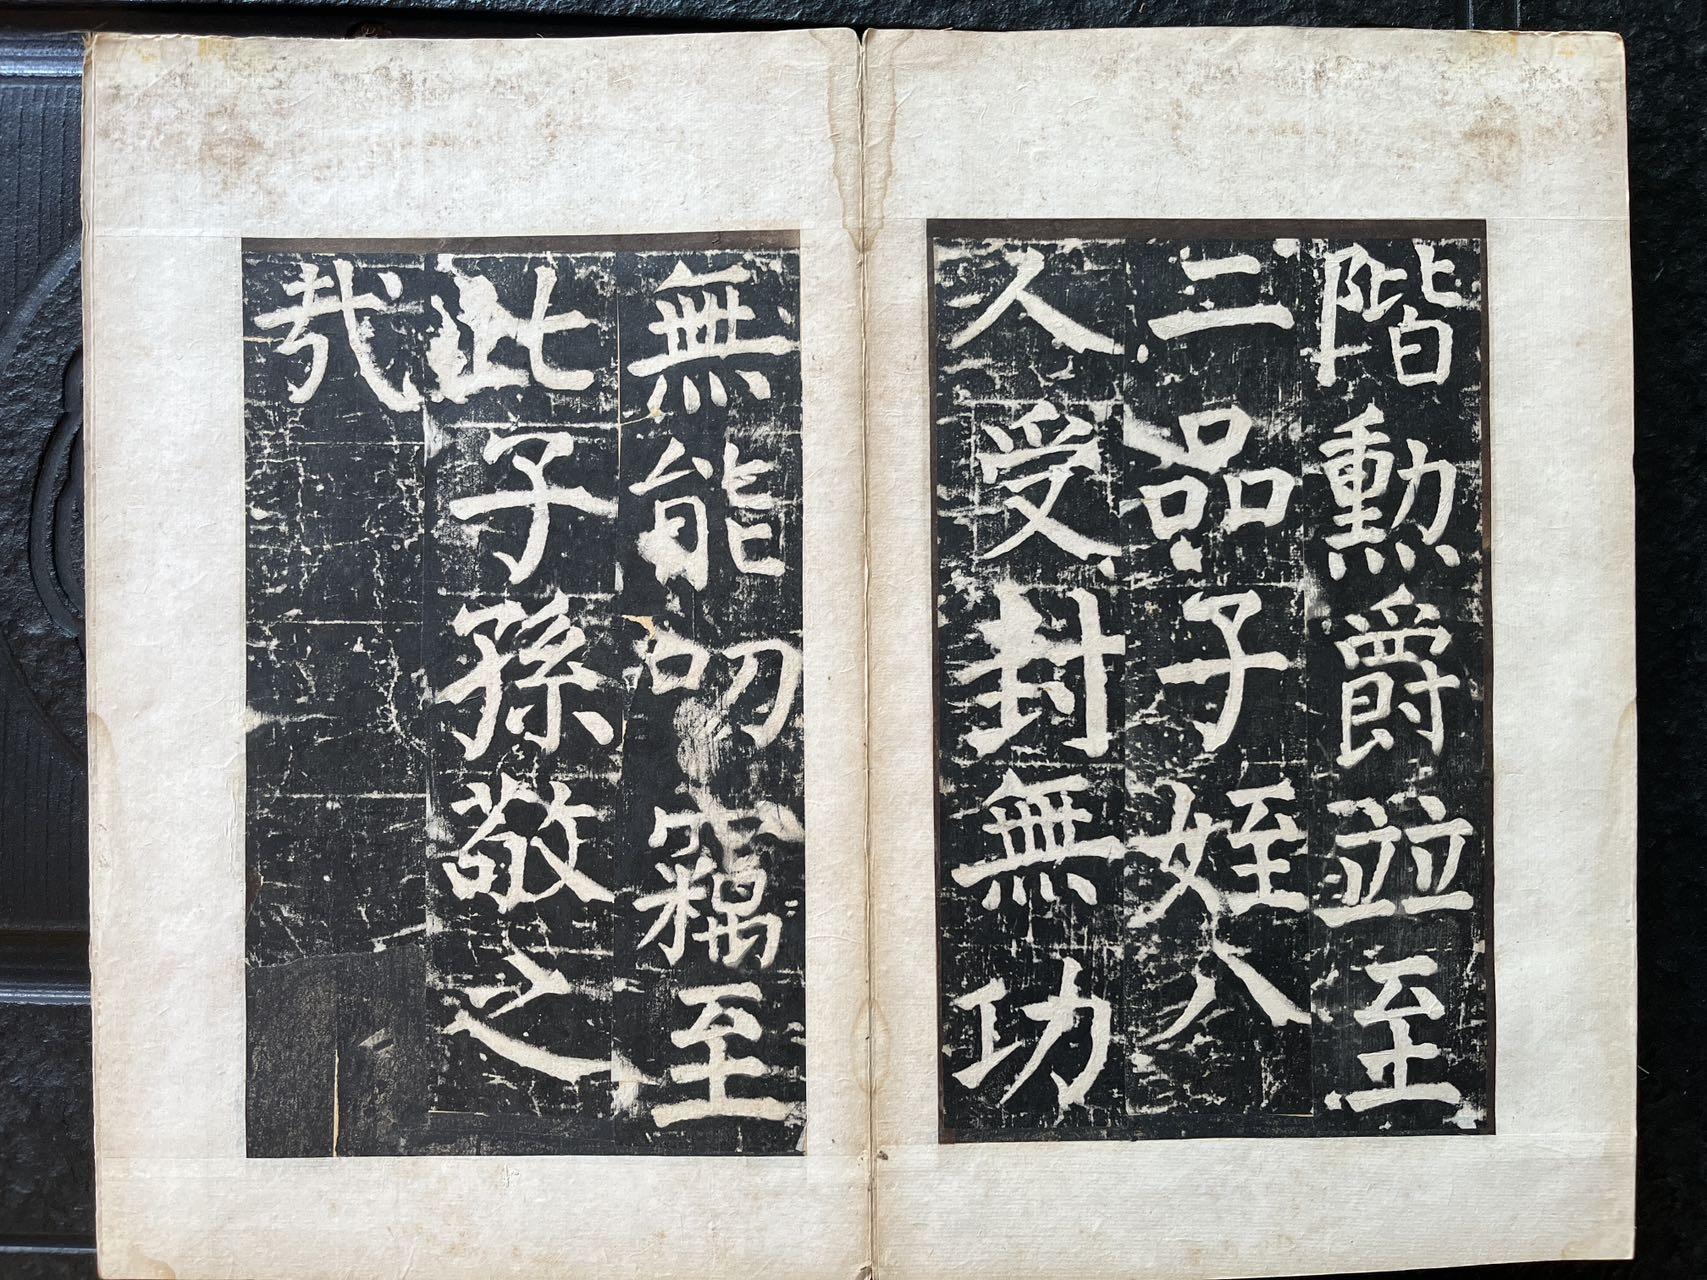 階勳爵並至
二品子姪八
人受封無功
無能叨竊至
此子孫敬之
哉